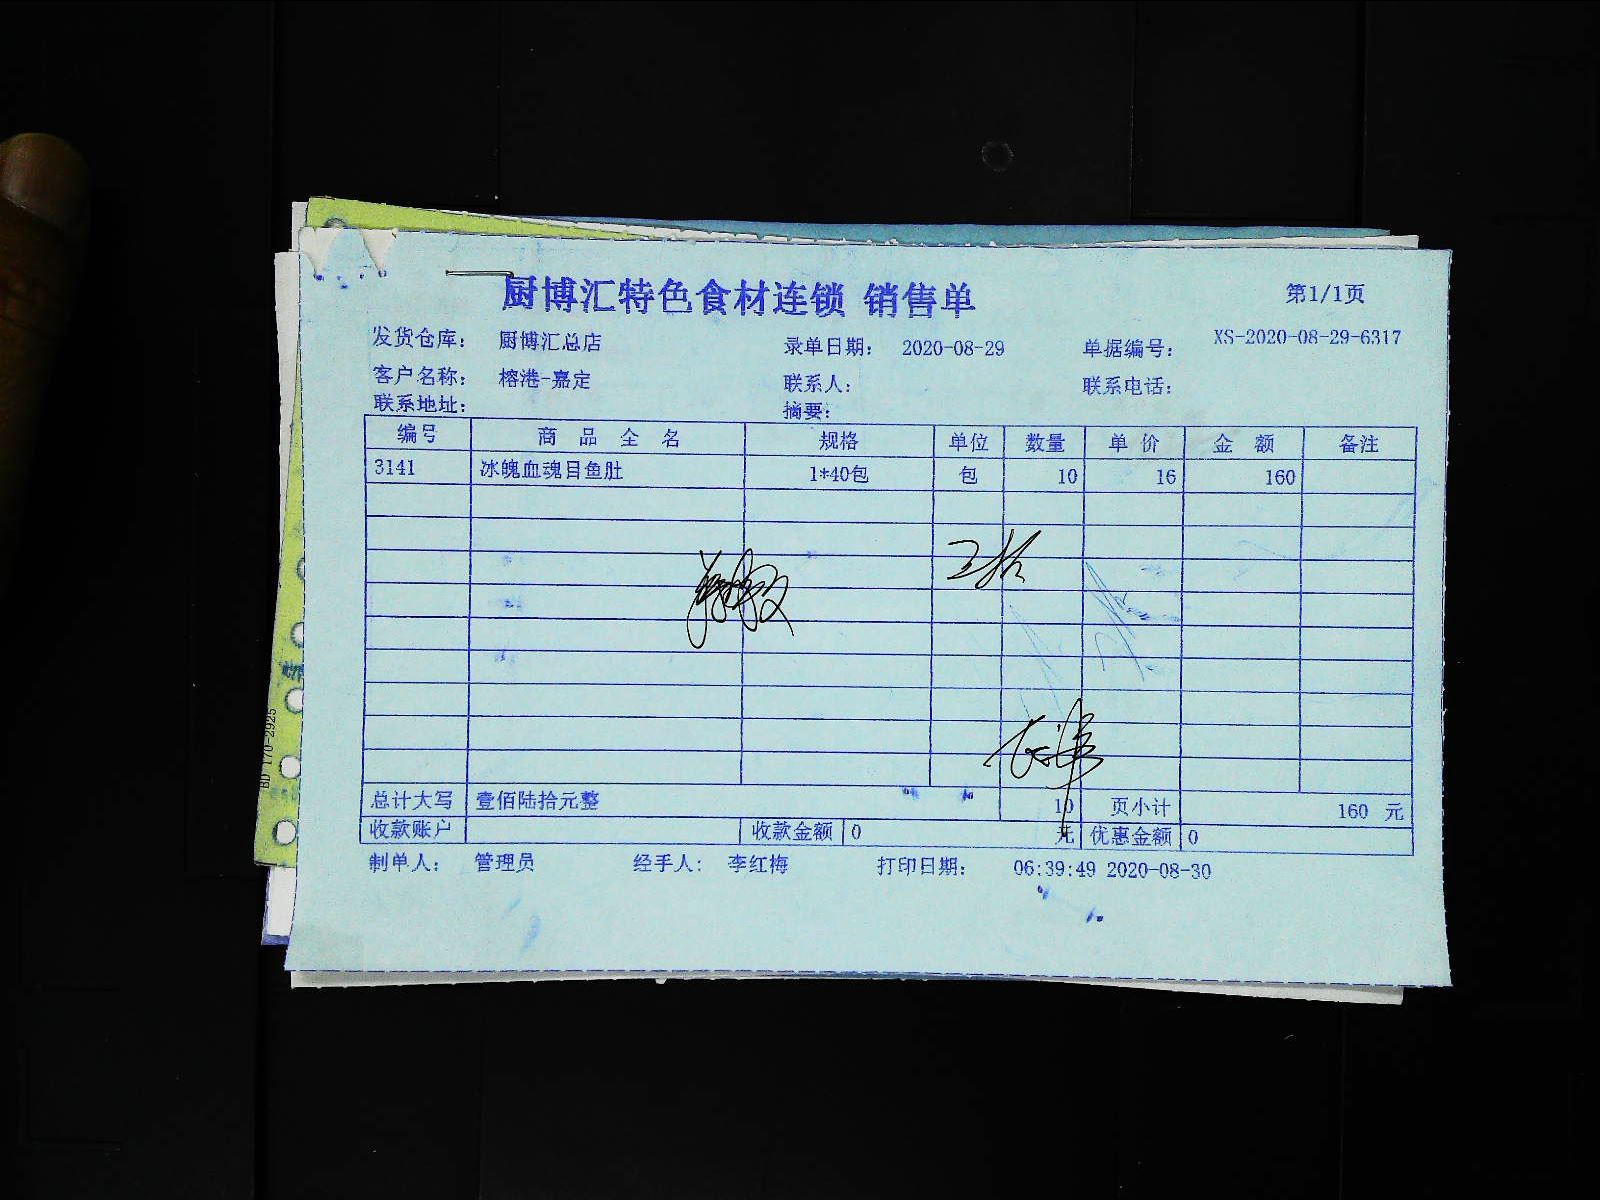 厨博汇特色食材连锁 销售单
第1/1页
发货仓库： 厨博汇总店 录单日期： 2020-08-29 单据编号： XS-2020-08-29-6317
客户名称： 榕港-嘉定 联系人： 联系电话：
联系地址： 摘要：
编号 商品全名 规格 单位 数量 单价 金额 备注
3141 冰魄血魂目鱼肚 1*40包 包 10 16 160
总计大写 壹佰陆拾元整 10 页小计 160 元
收款账户 收款金额 0 元 优惠金额 0
制单人： 管理员 经手人： 李红梅 打印日期： 06:39:49 2020-08-30
BD 170-2925